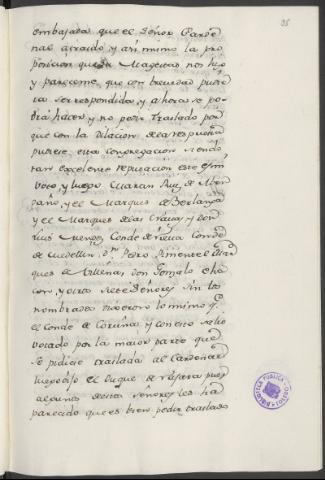 35
embajada que el Señor Carde
nal ha traido y asi mismo la pro
posicion que su Magestad nos hizo
y pareceme, que con brevedad pudie
ra ser respondida, y ahora se po
drá hacer y no pedir traslado por
que con la dilacion de la respuesta
pudiere, esta congregacion siendo
tan excelente reputacion este es mi
voto, y luego Juan Ruiz de
y el Marques de Berlanga
y el Marques de las Navas y Don
Luis Mendez Conde de
de Medellin, Dn Pedro Pimentel Mar
ques de Villena, don Gonzalo cha
con, y otros siete Señores sin los
nombrados dixeron lo mismo qe
el Conde de Coruña y con esto salio
votado por la maior parte que
se pidiese traslado al Cardenal
luego dijo el Duque de Najara pues
algunos destos Señores les ha
parecido que es bien pedir traslado
BIBLIOTECA PUBLICA TOLEDO